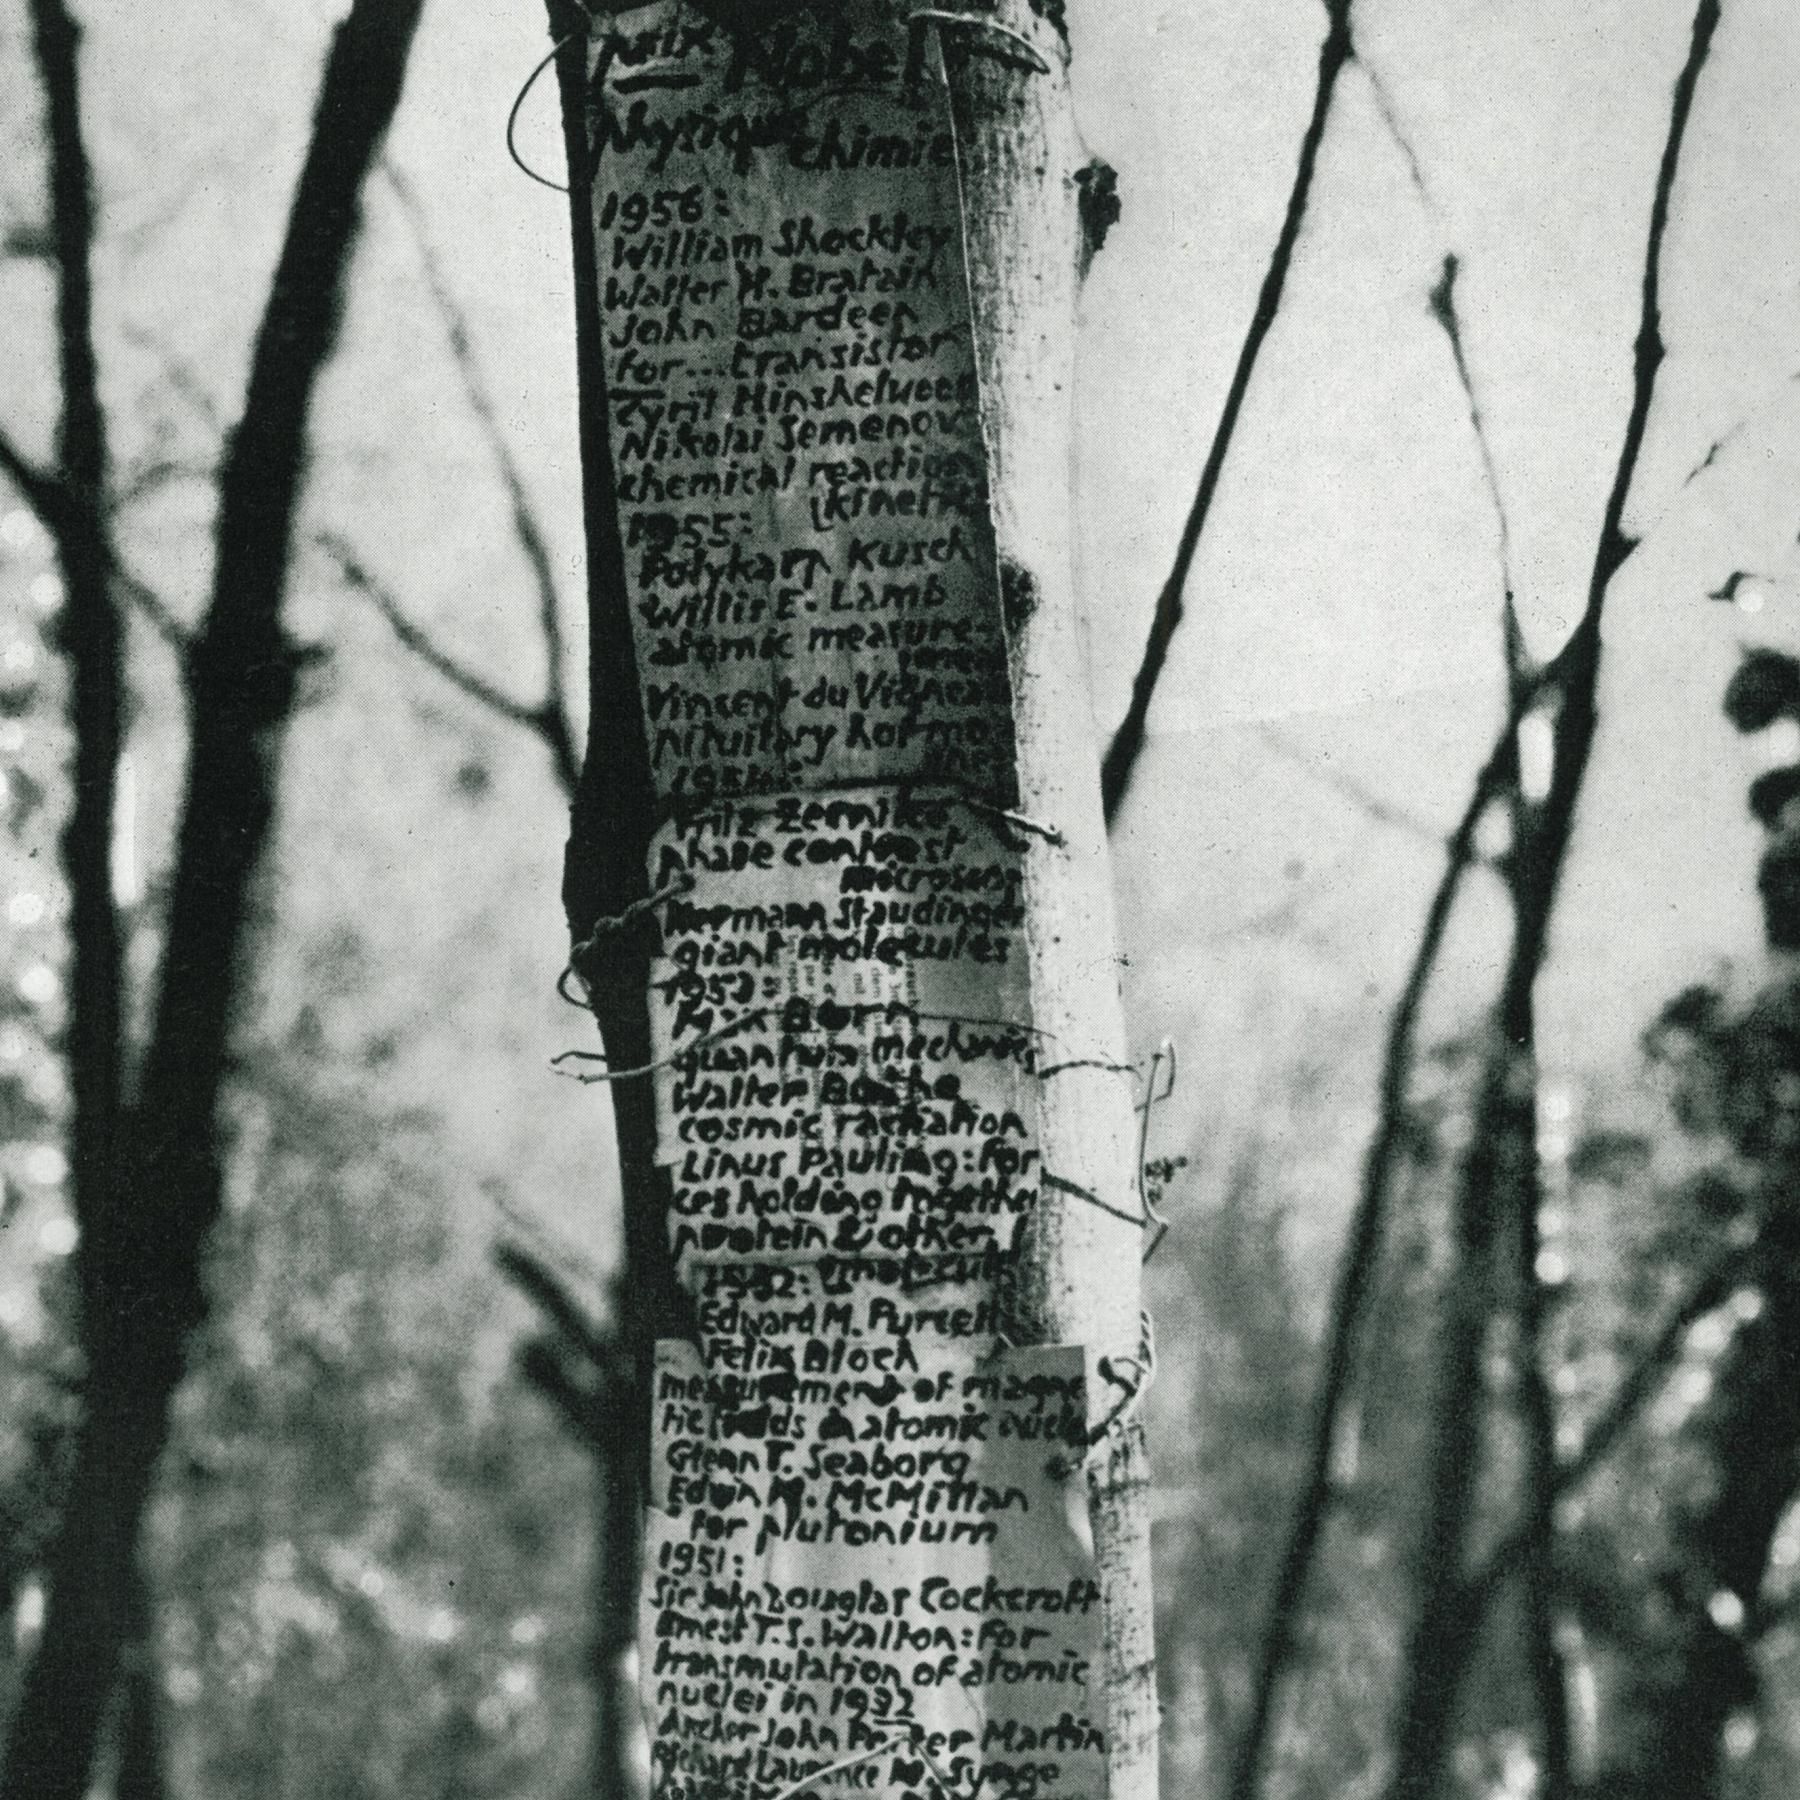 Prix Nobel
Physique chimie
1956:
William Shockley
Walter H. Bratain
John Bardeen
for...transistor
Cyril Hinshelwood
Nikolai Semenov
chemical reaction
(kinetic
1955:
Polykarp Kusch
Willis E. Lamb
atomic measure-
ment
Vincent du Vignea
pituitary hormo
nes
1954:
Fritz Zernike
phase contrast
microscop
Hermann Staudinger
giant molecules
Max Born
quantum mechanics
Walter Bothe
cosmic radiation
Linus Pauling: for
ces holding together
protein & other
1952: molecul
Edward M. Purcell
Felix Bloch
measurement of magne
tic fields in atomic nuclei
Glenn T. Seaborg
Edwin M. McMillan
for plutonium
1951:
Sir John Douglas Cockcroft
Ernest T.S. Walton: for
transmutation of atomic
nuclei in 1932
Archer John Porter Martin
Richard Laurence M. Synge